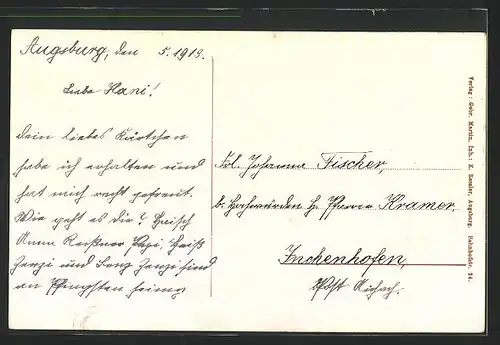 Augsburg, den 5.1913.
Liebe Hani!
Dein liebes Kärtchen
habe ich erhalten und
hat mich recht gefreut.
Wie geht es dir?
Anna
Zenzi und Zenzi sind
an Pfingsten
Frl. Johanna Fischer,
b. Hochwürden H. Pfarrer Kramer,
Inchenhofen,
Post Aichach.
Verlag: Gebr. Martin, Inh.: X. Kessler, Augsburg, Bahnhofstr. 24.